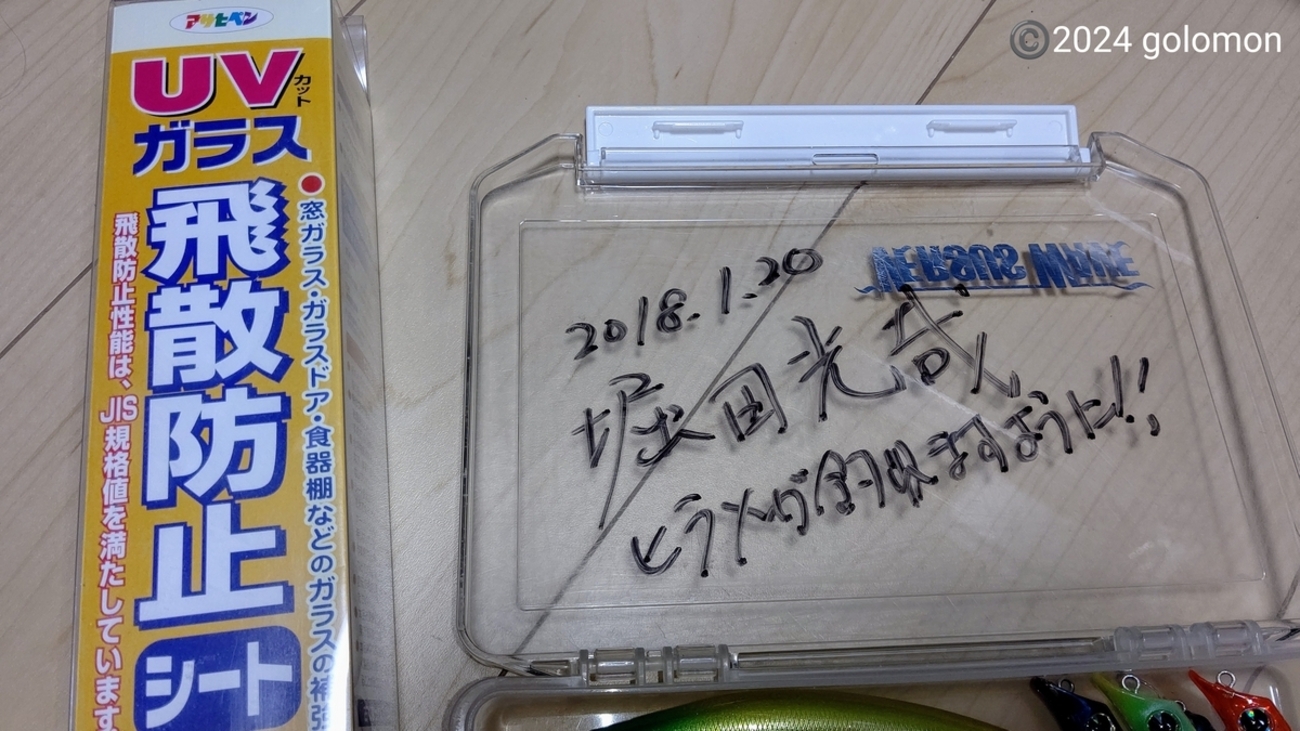 ©2024 golomon
アサヒペン
UVカット
ガラス
飛散防止
シート
●窓ガラス・ガラスドア・食器棚などのガラスの補強
飛散防止性能は、JIS規格値を満たしています
VERSUS
2018.1.20
堀田光哉
ヒラメが釣れますように!!